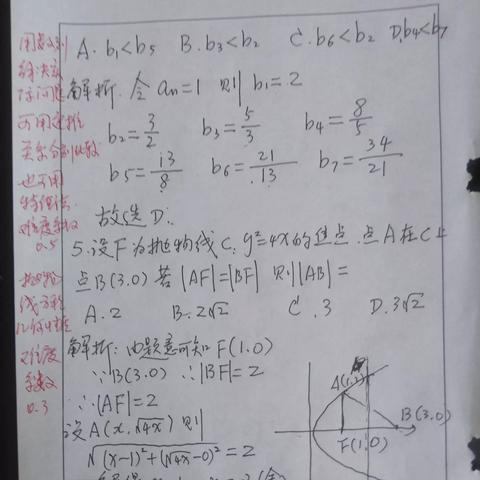 A. b₁<b₅ B. b₃<b₂ C. b₆<b₂ D. b₄<b₇
解析: 令 aₙ=1 则 b₁=2
b₂=3/2 b₃=5/3 b₄=8/5
b₅=13/8 b₆=21/13 b₇=34/21
故选 D.
5. 设F为抛物线C: y²=4x的焦点. 点A在C上
点B(3.0) 若 |AF|=|BF| 则|AB|=
A. 2 B. 2√2 C. 3 D. 3√2
解析: 由题意可知 F(1.0)
∵B(3.0) ∴|BF|=2
∴|AF|=2
设A(x,√4x) 则
√((x-1)²+(√4x-0)²)=2
B(3.0)
F(1.0)
可用递推
也可用
特值法
难度系数
0.5
抛物
线方程
几何性质
难度
系数
0.3